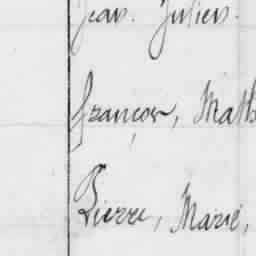 Jean. Julien.
françois, Math
Pierre, Marie,